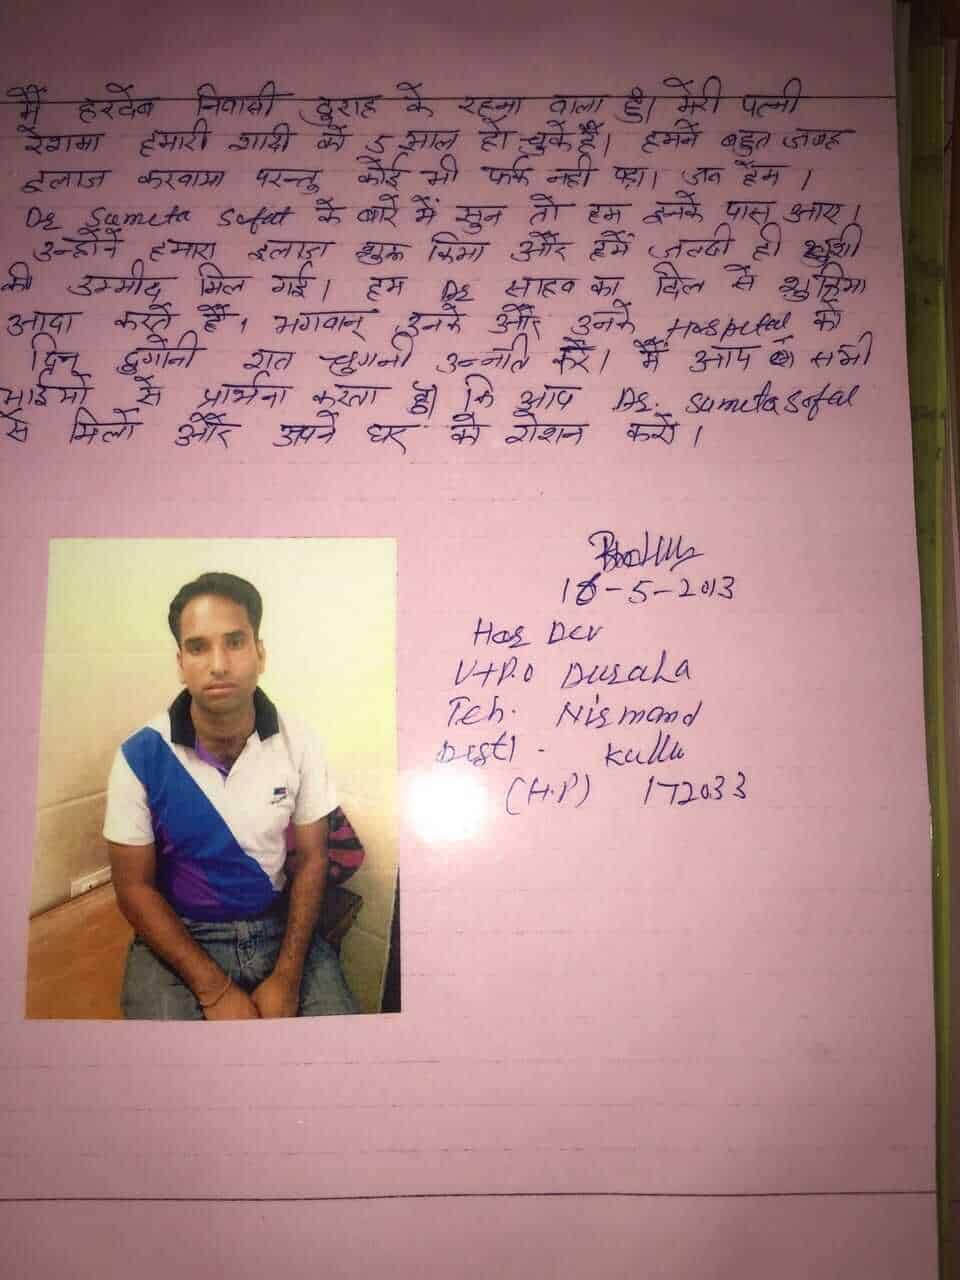 मैं हरदेव निवासी दुराह के रहना वाला हूं। मेरी पत्नी
रेशमा हमारी शादी को 5 साल हो चुके हैं। हमने बहुत जगह
इलाज करवाया परन्तु कोई भी फर्क नही पड़ा। जब हम।
Dr Sumeta Sofat के बारे में सुन तो हम इनके पास आए।
उन्होंने हमारा इलाज शुरू किया और हमें जलदी ही खुशी
की उम्मीद मिल गई। हम Dr साहव का दिल से शुक्रिया
आदा करते हैं। भगवान् उनके और उनके Hospital को
दिन दुगोनी रात चुगनी उन्नति करें। मैं आप सभी
भाईयों से प्रार्थना करता हूं कि आप Dr. Sumeta Sofat
से मिलों और अपने घर को रोशन करो।
16-5-2013
Har Dev
V+P.O Duraha
Teh. Nirmand
Distt. Kullu
(H.P) 172033